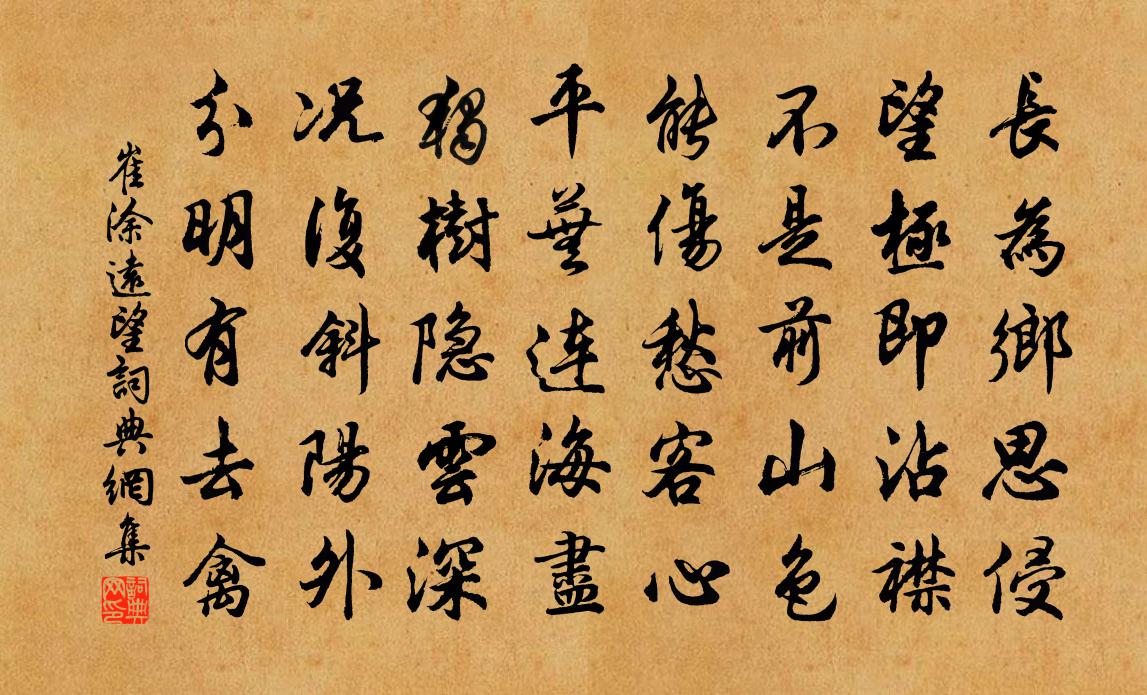 長為鄉思侵
望極即沾襟
不是前山色
能傷愁客心
平蕪連海盡
獨樹隠雲深
况復斜陽外
分明有去禽
崔涂遠望詞典網集
詞典网印